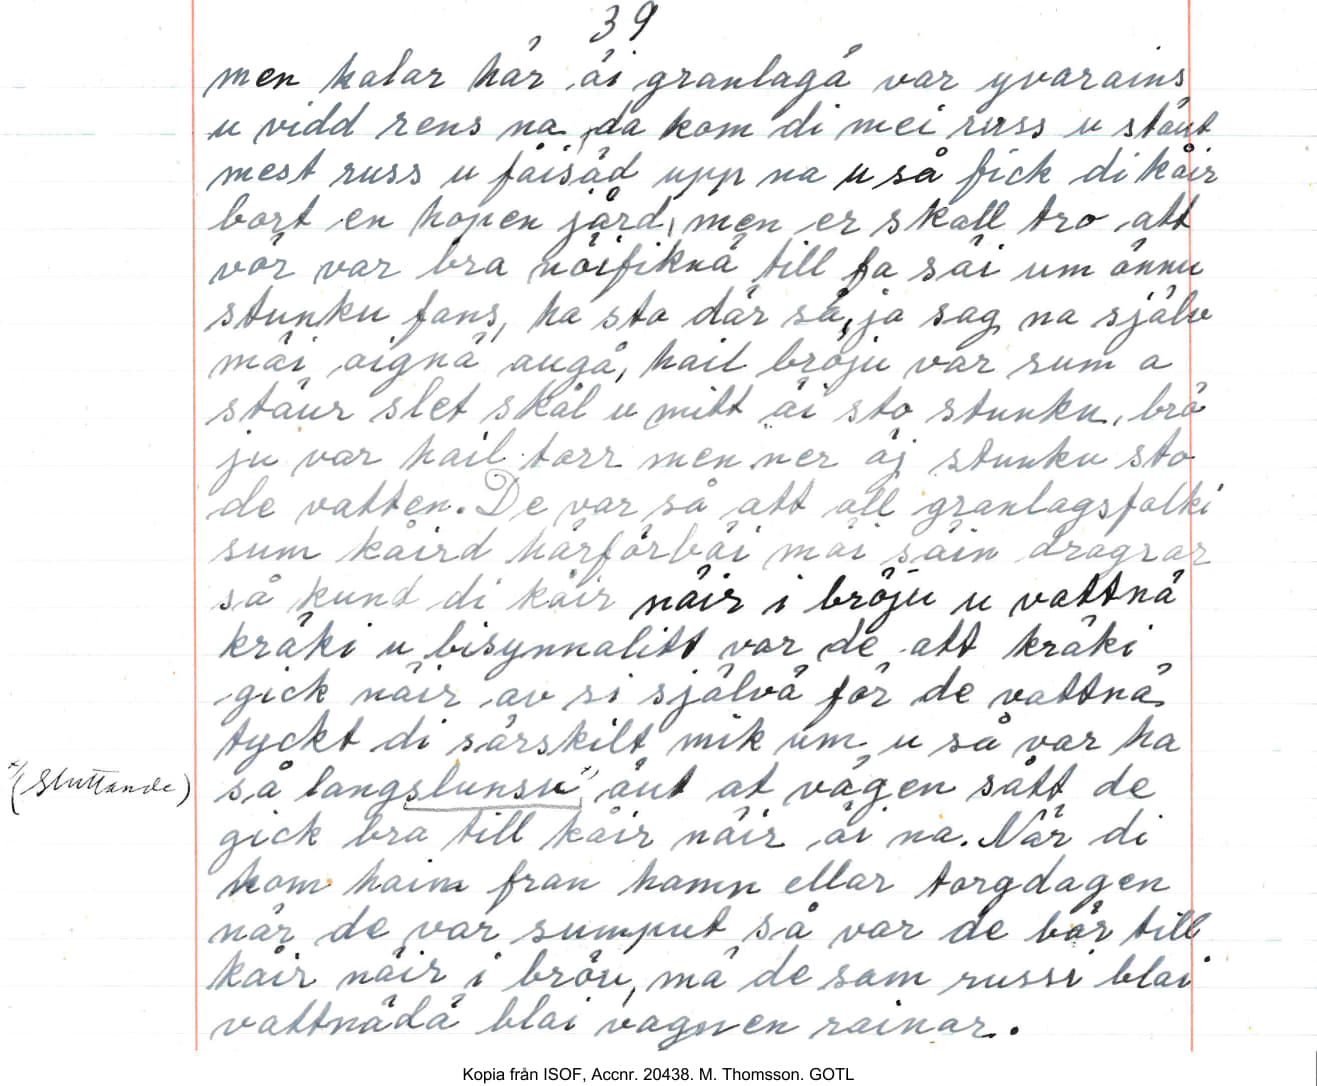 39
men kalar här äi granlagå var yvarains
u vidd rens na, da kom di mei russ u stäut
mest russ u fäisåd upp na u så fick di kåir
bort en hopen järd, men er skall tro att
vör var bra nöifiknä till fa säi um ännu
stunku fans, ha sto där så, ja sag na själv
mäi aignä augå, hail bröju var sum a
stäur slet skål u mitt äi sto stunku, brö
ju var hail tarr men ner äj stunku sto
de vatten. De var så att all granlagsfalki
sum kåird härförbäi mäi säin dragrar
så kund di kåir näir i bröju u vattnä
kräki u bisynnalitt var de att kräki
gick näir av si självå för de vattnä
tyckt di särskilt mik um u så var ha
så langslunsu x) äut at vägen sått de
x) (Sluttande)
gick bra till kåir näir äi na. När di
kom haim fran hamn ellar torgdagen
når de var sumput så var de bär till
kåir näir i bröu, mä de sam russi blai
vattnädä blai vagnen rainar.
Kopia från ISOF, Accnr. 20438. M. Thomsson. GOTL